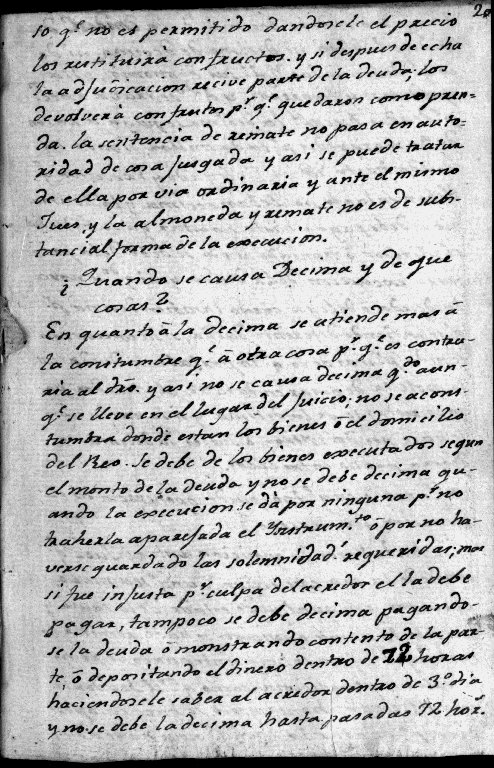 20
so q.^e no es permitido dandosele el precio
los restituirà con fructos. y si despues de echa
la adjudicacion recive parte de la deuda; los
devolverà con frutos p.^r q.^e quedaron como pren-
da. la sentencia de remate no pasa en auto-
ridad de cosa jusgada y asi se puede tratar
de ella por via ordinaria y ante el mismo
Jues, y la almoneda y remate no es de subs-
tancial forma de la execucion.
¿ Quando se causa Decima y de que
cosas?
En quanto à la decima se atiende mas à
la constumbre q.^e à otra cosa p.^r q.^e es contra-
ria al dro. y asi no se causa decima q.^do aun-
q.^e se lleve en el lugar del Juicio; no se acons-
tumbra donde estan los bienes ò el domicilio
del Reo. Se debe de los bienes executados segun
el monto de la deuda y no se debe decima qu-
ando la execucion se dà por ninguna p.^r no
traherla aparejada el Ynstrum.^to ò por no ha-
verse guardado las solemnidad.^s requeridas; mas
si fue injusta p.^r culpa del acredor el la debe
pagar, tampoco se debe decima pagando-
se la deuda ò monstrando contento de la par-
te ò depositando el dinero dentro de 72 horas
haciendosele saber al acredor dentro de 3.^o dia
y no se debe la decima hasta pasadas 72 hor.^s